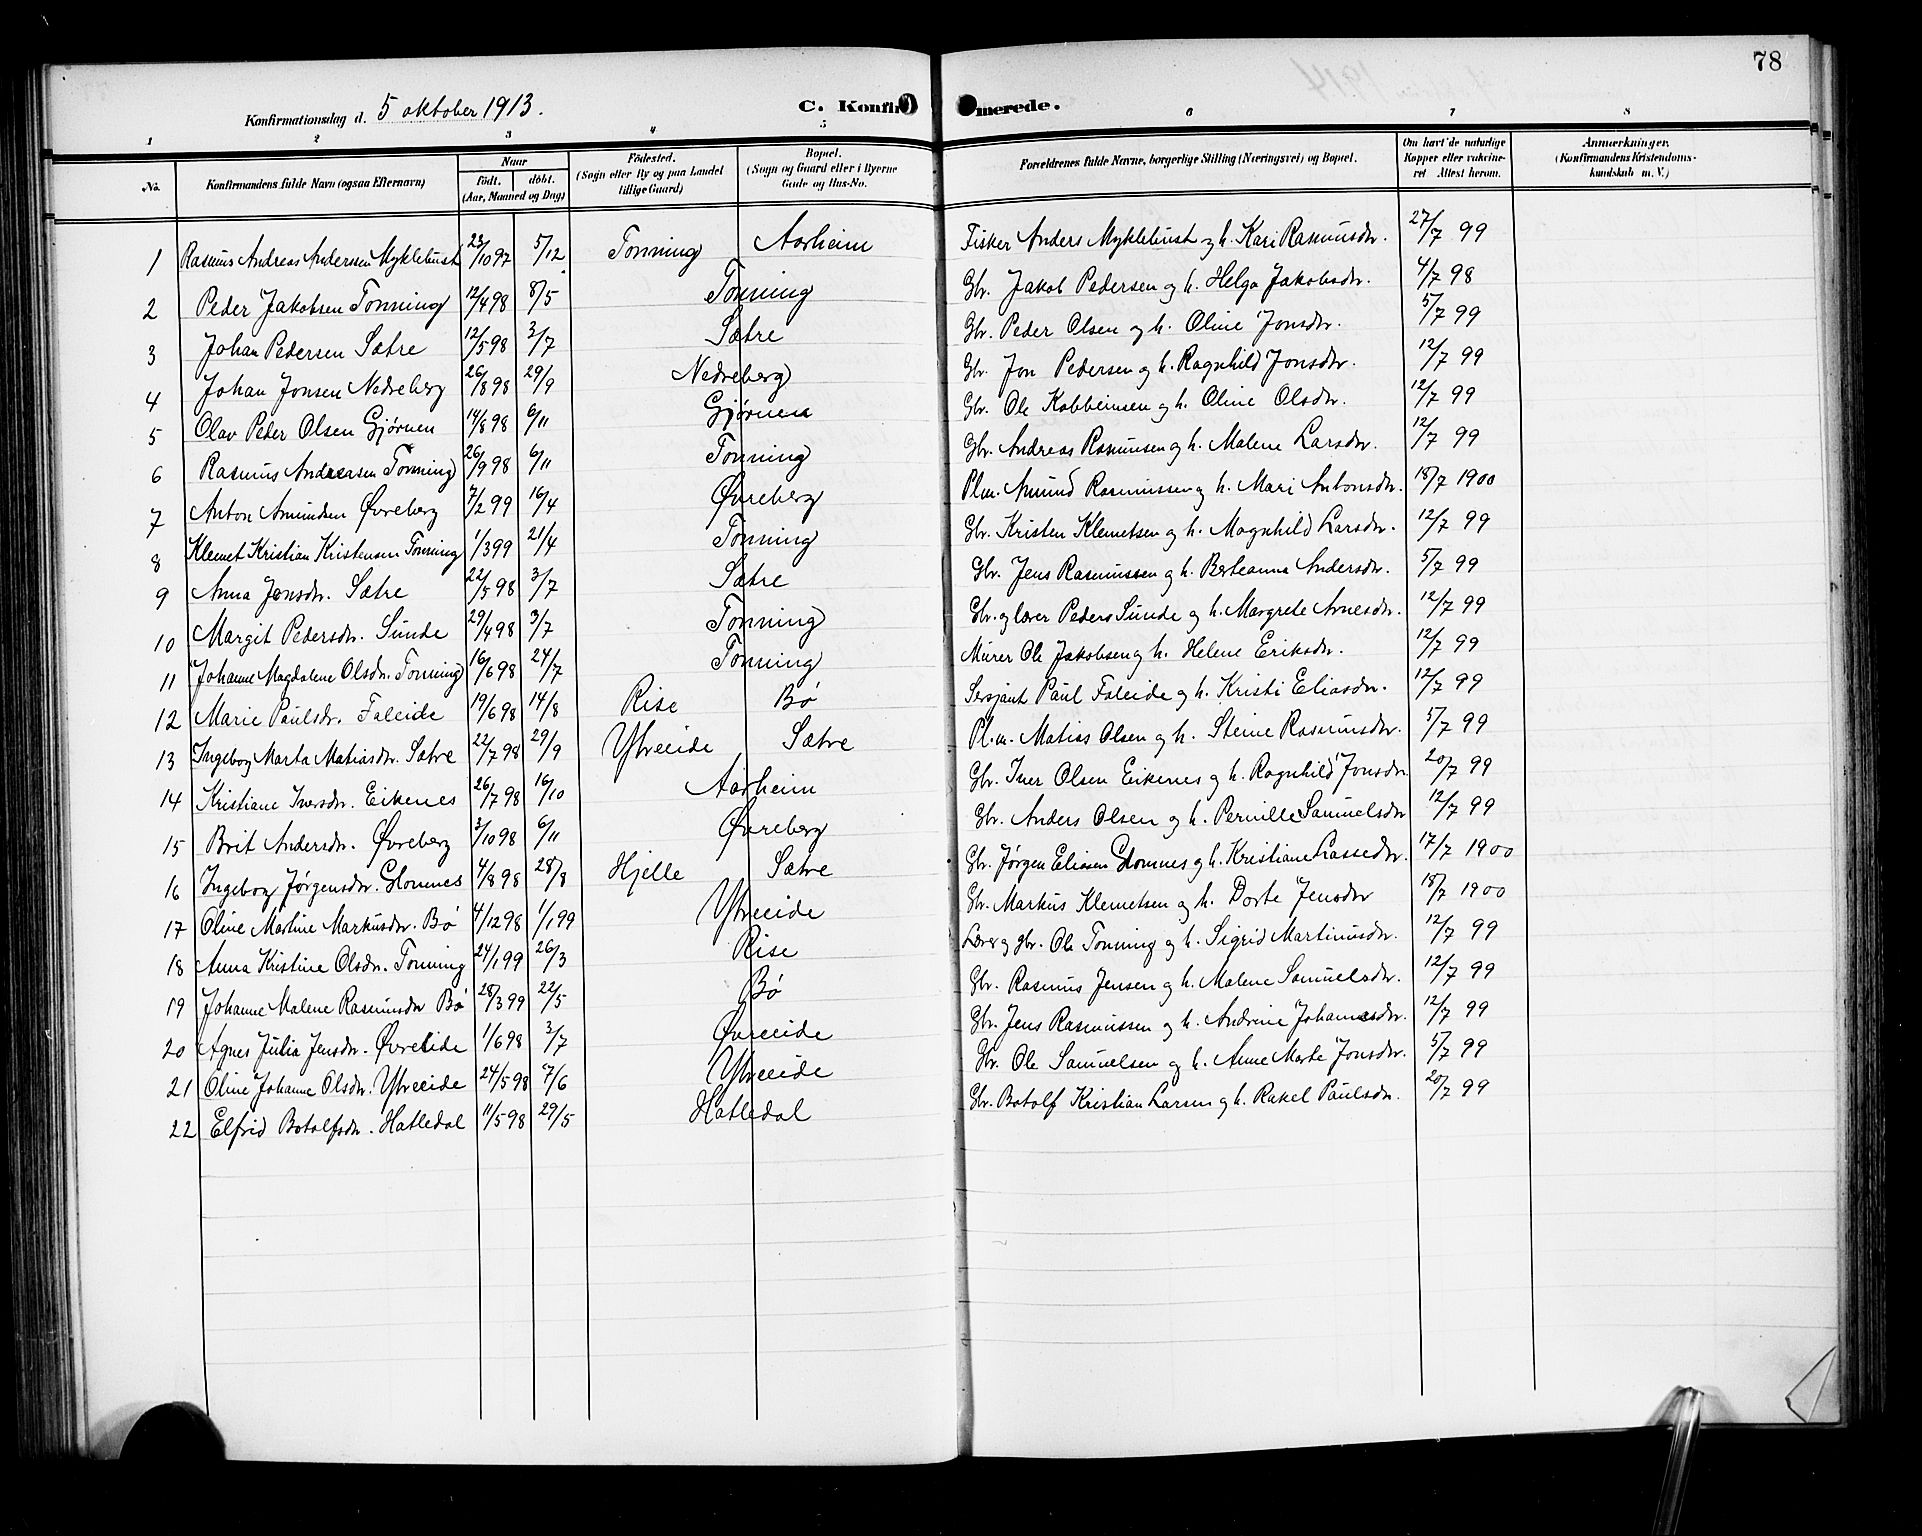 78
Konfirmationsdag d. 5 oktober 1913.
C. Konfir merede.
1 2 3 4 5 6 7 8
No. Konfirmandens fulde Navn (ogsaa Efternavn) Naar födt, döbt. (Aar, Maaned og Dag) Födested. (Sogn eller By og paa Landet tillige Gaard) Bopæl. (Sogn og Gaard eller i Byerne Gade og Hus-No. Forældrenes fulde Navne, borgerlige Stilling (Næringsvei) og Bopæl. Om havt de naturlige Kopper eller vakcineret Attest herom. Anmærkninger. (Konfirmandens Kristendomskundskab m. V.)
1 Rasmus Andreas Anderssen Myklebust 23/10 97 5/12 Tonning Aarheim Fisker Anders Myklebust og h. Kari Rasmusdr. 27/7 99
2 Peder Jakobsen Tonning 12/4 98 8/5 Tonning Gbr. Jakob Pedersen og h. Helga Jakobsdr. 4/7 98
3 Johan Pedersen Sætre 12/5 98 3/7 Sætre Gbr. Peder Olsen og h. Oline Jonsdr. 5/7 99
4 Johan Jonsen Nedreberg 26/8 98 29/9 Nedreberg Gbr. Jon Pedersen og h. Ragnhild Jonsdr. 12/7 99
5 Olav Peder Olsen Gjørnen 14/8 98 6/11 Gjørnen Gbr. Ole Kobbeinsen og h. Oline Olsdr. 12/7 99
6 Rasmus Andreasen Tonning 26/9 98 6/11 Tonning Gbr. Andreas Rasmussen og h. Malene Larsdr. 12/7 99
7 Anton Amundsen Øvreberg 7/2 99 16/4 Øvreberg Plm. Amund Rasmussen og h. Mari Antonsdr. 18/7 1900
8 Klemet Kristian Kristensen Tonning 1/3 99 21/4 Tonning Gbr. Kristen Klemetsen og h. Magnhild Larsdr. 12/7 99
9 Anna Jensdr. Sætre 22/5 98 3/7 Sætre Gbr. Jens Rasmussen og h. Berteanna Andersdr. 5/7 99
10 Margit Pedersdr. Sunde 29/4 98 3/7 Tonning Gbr. og lærer Peders Sunde og h. Margrete Arnesdr. 12/7 99
11 Johanne Magdalene Olsdr. Tonning 16/6 98 24/7 Tonning Murer Ole Jakobsen og h. Helene Eriksdr. 12/7 99
12 Marie Paulsdr. Faleide 19/6 98 14/8 Rise Bø Sersjant Paul Faleide og h. Kristi Eliasdr. 12/7 99
13 Ingeborg Marta Matiasdr. Sætre 22/7 98 29/9 Ytreeide Sætre Pl.m. Matias Olsen og h. Steine Rasmusdr. 5/7 99
14 Kristiane Iversdr. Eikenes 26/7 98 16/10 Aarheim Gbr. Iver Olsen Eikenes og h. Ragnhild Jonsdr. 20/7 99
15 Brit Andersdr. Øvreberg 3/10 98 6/11 Øvreberg Gbr. Anders Olsen og h. Pernille Samuelsdr 12/7 99
16 Ingeborg Jørgensdr. Glomnes 4/8 98 28/8 Hjelle Sætre Gbr. Jørgen Eliasen Glomnes og h. Kristiane Lassedr. 17/7 1900
17 Oline Martine Markusdr. Bø 4/12 98 1/1 99 Ytreeide Gbr. Markus Klemetsen og h. Dorte Jensdr 18/7 1900
18 Anna Kristine Olsdr. Tonning 24/1 99 26/3 Rise Lærer og gbr. Ole Tonning og h. Sigrid Martinusdr. 12/7 99
19 Johanne Malene Rasmusdr Bø 28/3 99 22/5 Bø Gbr. Rasmus Jensen og h. Malene Samuelsdr. 12/7 99
20 Agnes Julia Jensdr. Øvreeide 1/6 98 3/7 Øvreeide Gbr. Jens Rasmussen og h. Andrine Johannesdr. 12/7 99
21 Oline Johanne Olsdr. Ytreeide 24/5 98 7/6 Ytreeide Gbr. Ole Samuelsen og h. Anne Marte Jonsdr. 5/7 99
22 Elfrid Botolfsdr. Hatledal 11/5 98 29/5 Hatledal Gbr. Botolf Kristian Larsen og h. Rakel Paulsdr. 20/7 99